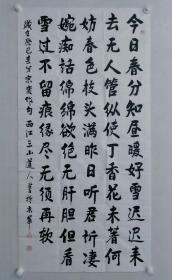 今日春分知昼暖好雪迟迟未
去无人管纵使丁香花未著何
妨春色枝头满昨日听君折凄
婉痴话绵绵欲绝无肝胆但看
雪过不留痕缘尽无须再软
岁在癸巳京夜作句西江三小道人書於京華